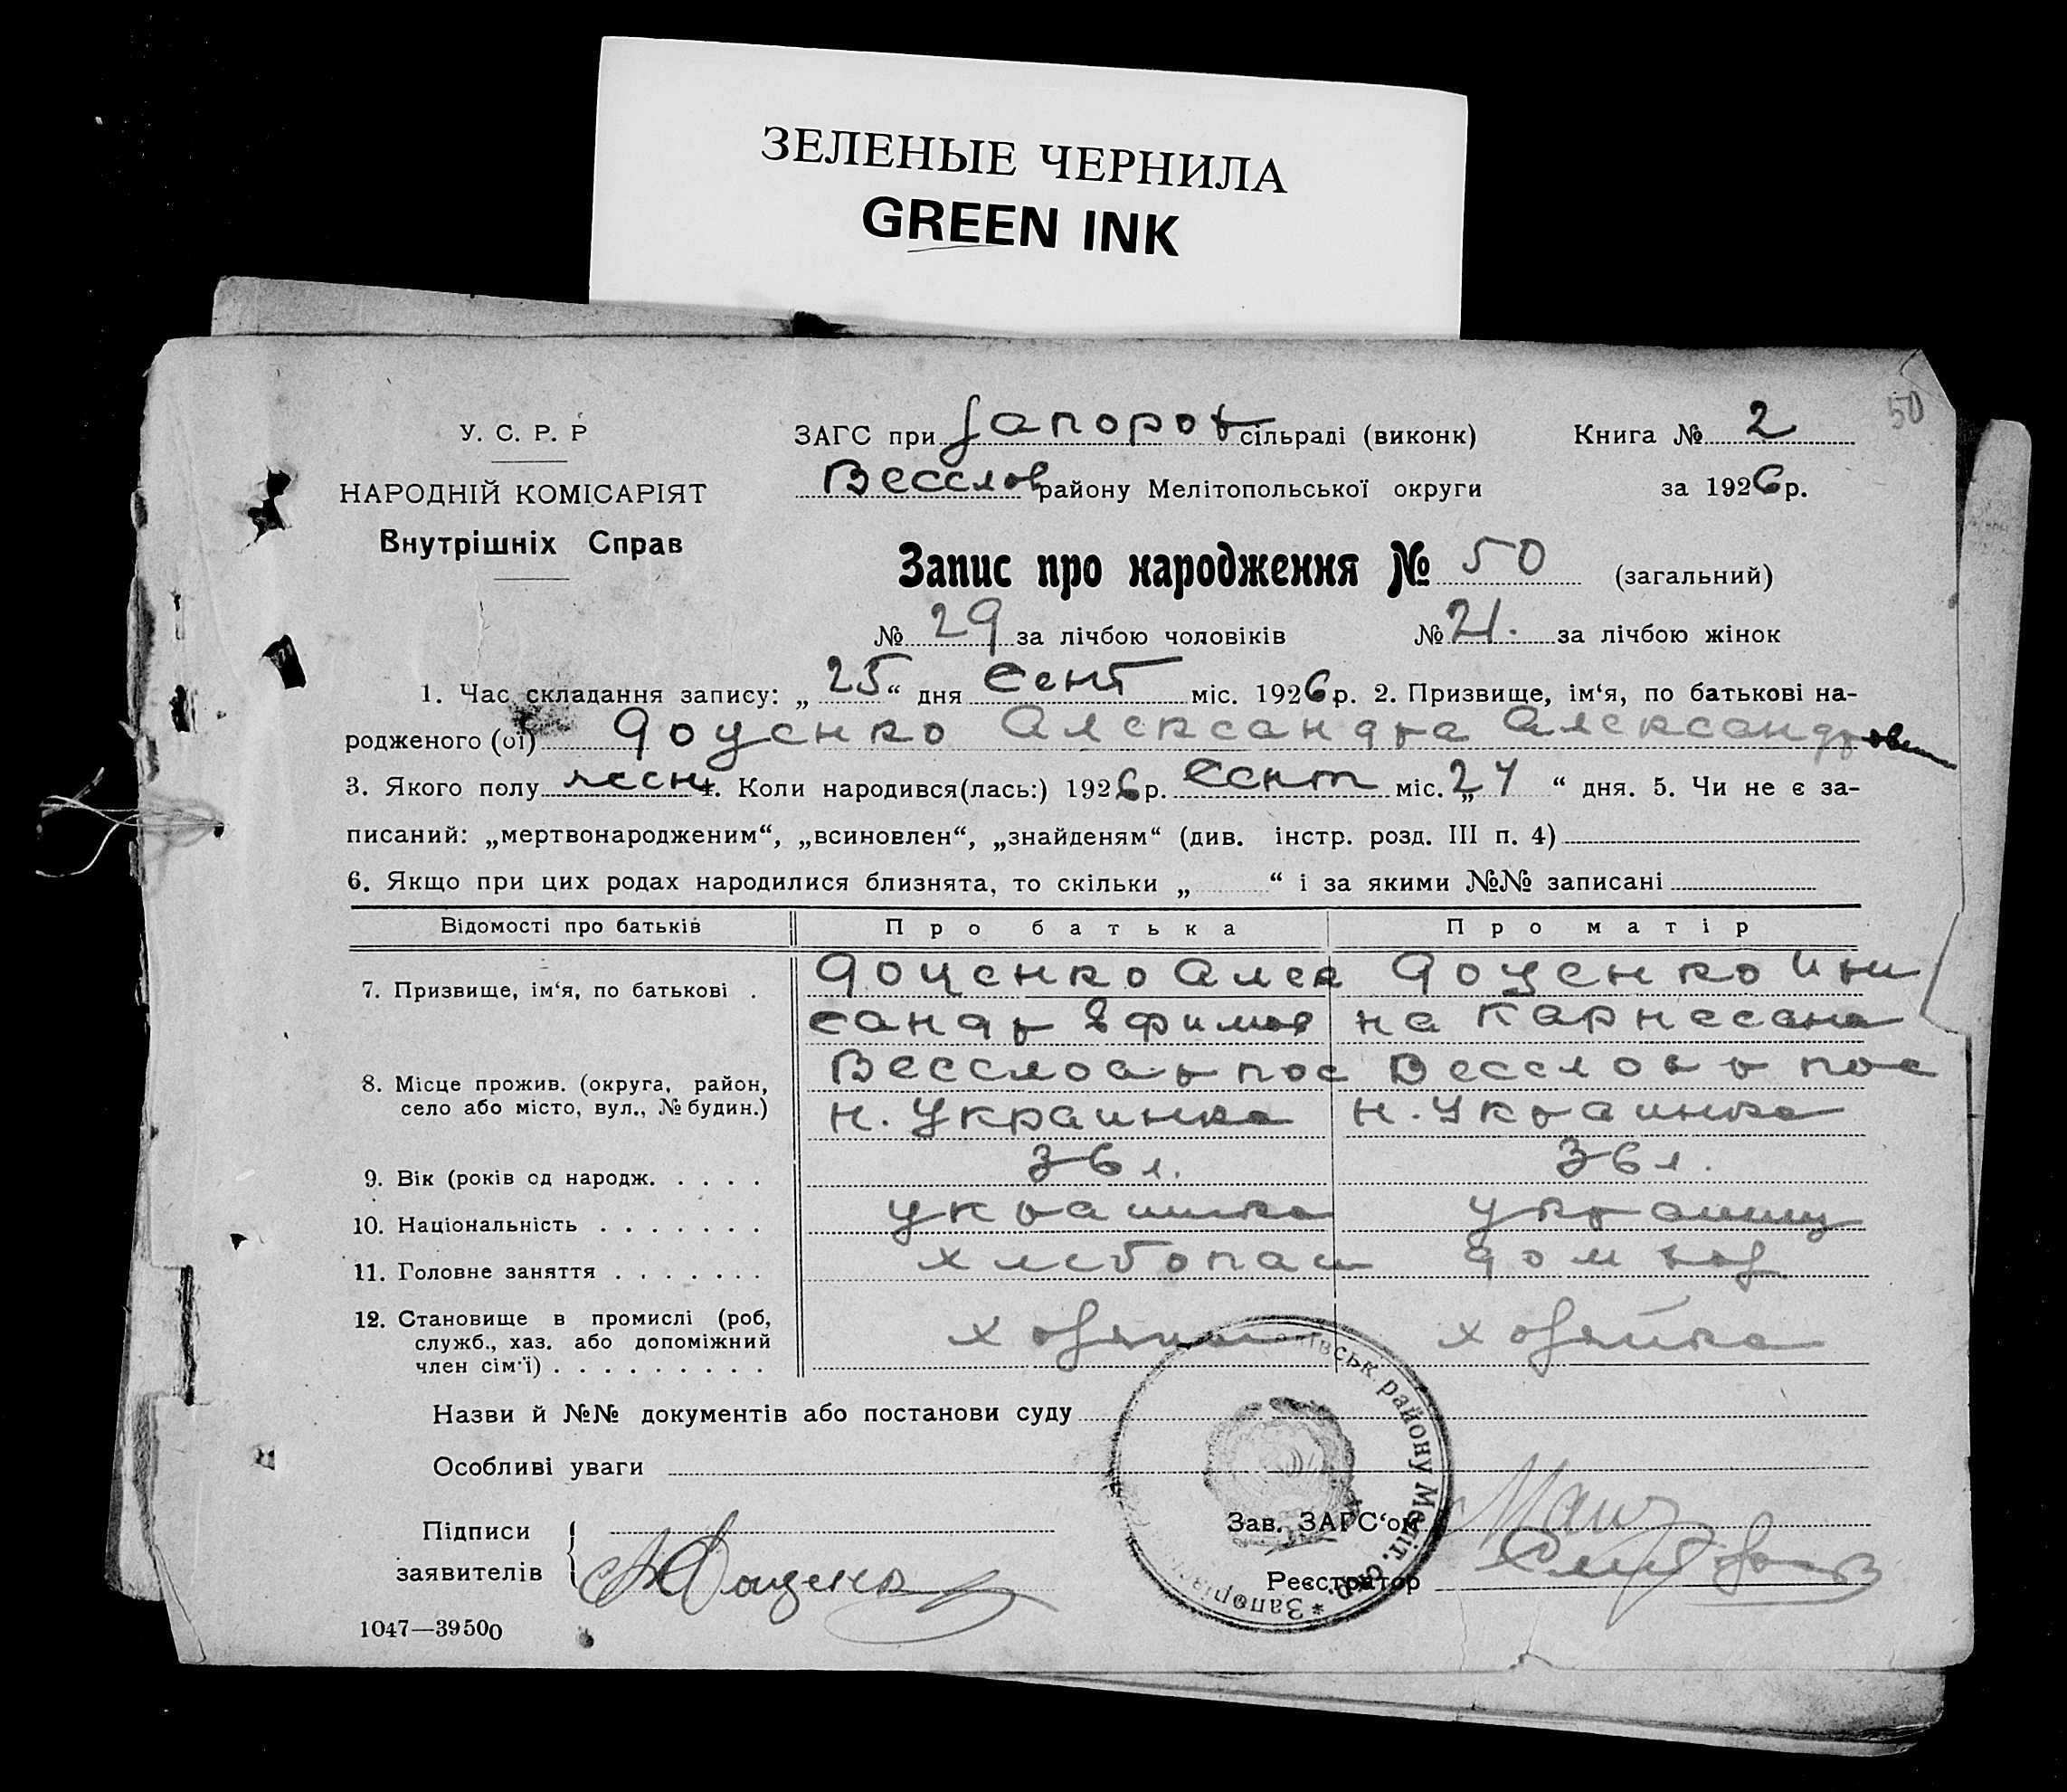 ЗЕЛЕНЫЕ ЧЕРНИЛА
GREEN INK
50
У. С. Р. Р
НАРОДНІЙ КОМІСАРІЯТ
Внутрішніх Справ
ЗАГС при Запоров сільраді (виконк) Книга № 2
Весслов району Мелітопольської округи за 1926 р.
Запис про народження № 50 (загальний)
№ 29 за лічбою чоловіків № 21. за лічбою жінок
1. Час складання запису: „25“ дня Сент міс. 1926 р. 2. Призвище, ім‘я, по батькові на-
родженого (ої) Доценко Александра Александров
3. Якого полу женс 4. Коли народився(лась:) 1926 р. Сент міс. „24“ дня. 5. Чи не є за-
писаний: „мертвонародженим“, „всиновлен“, „знайденям“ (див. інстр. розд. III п. 4)
6. Якщо при цих родах народилися близнята, то скільки „ “ і за якими №№ записані
Відомості про батьків Про батька Про матір
7. Призвище, ім‘я, по батькові . Доценко Алек Доценко
сандр Ефимов на
8. Місце прожив. (округа, район, село або місто, вул., № будин.) Весслов р пос Весслов р пос
Н. Украинка Н. Украинка
9. Вік (років од народж. . . . . 36 л. 36 л.
10. Національність . . . . . . . украинка украинц
11. Головне заняття . . . . . . . хлебопаш дом хоз
12. Становище в промислі (роб, служб., хаз. або допоміжний член сім‘ї) . . . . . . . . . хозяин хозяйка
Назви й №№ документів або постанови суду
Особливі уваги
Підписи
заявителів Доценко
Зав. ЗАГС‘ом
Реєстратор
району Меліт. окр. * Запоріз
1047—39500